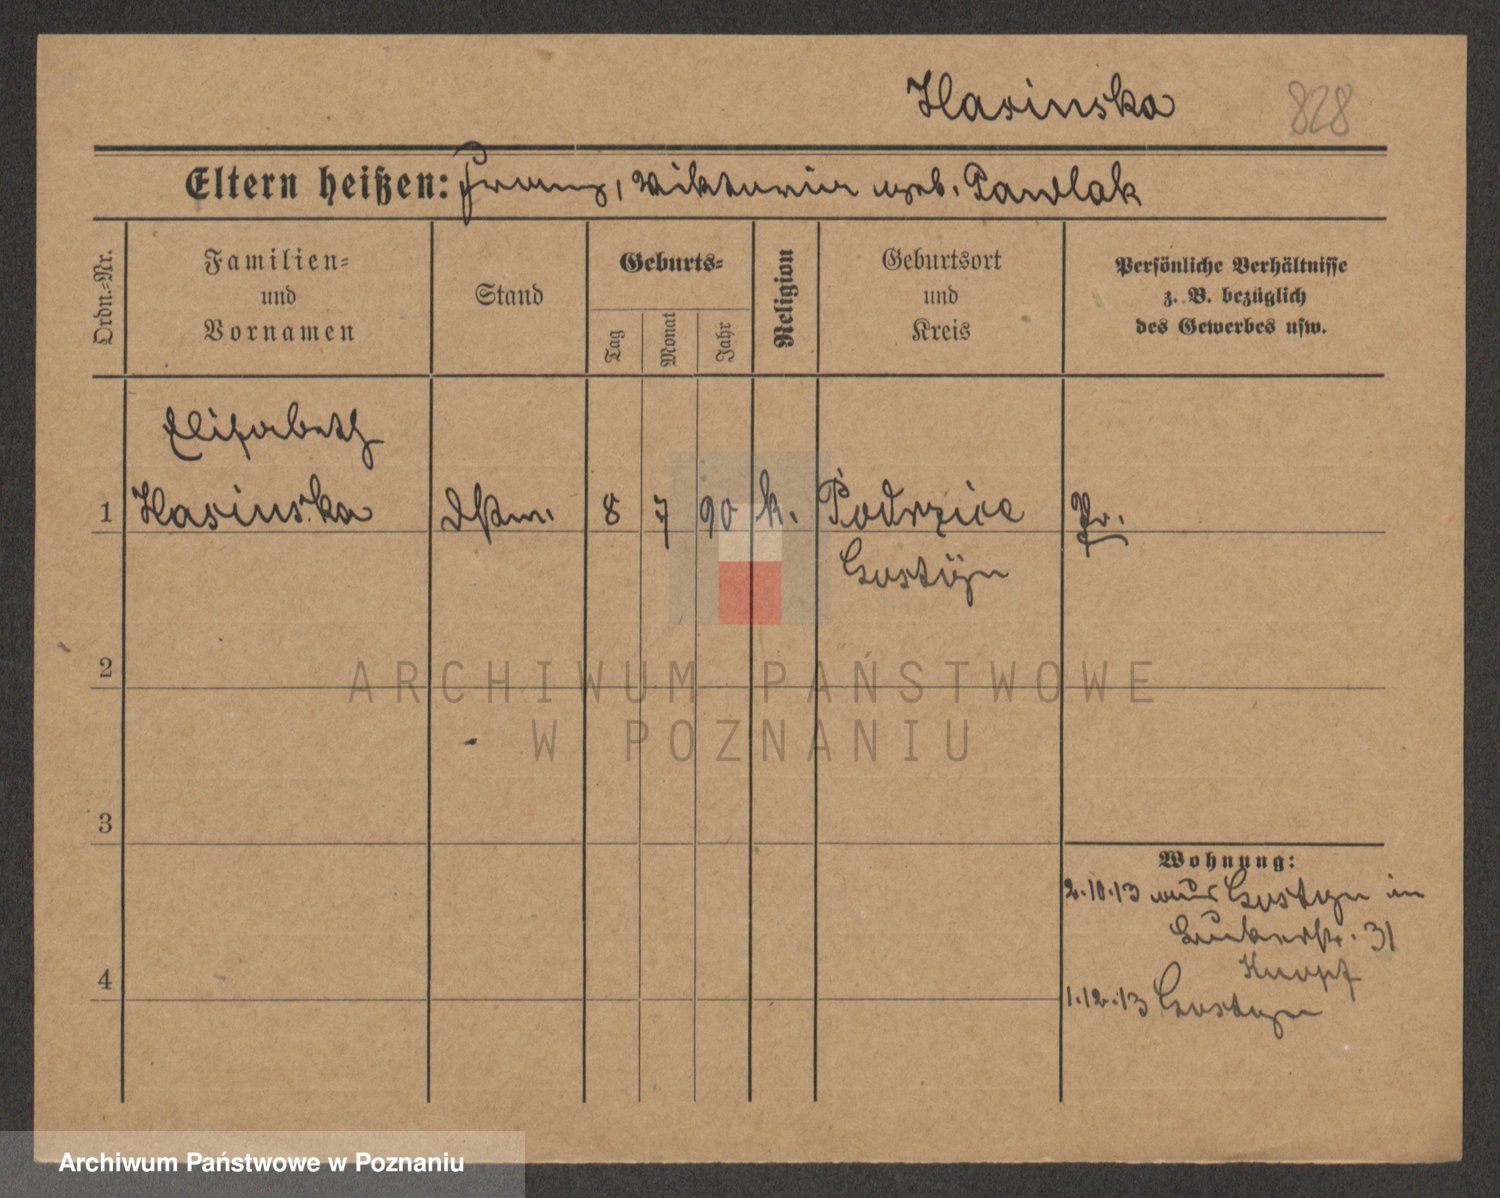 Hasinska 828
Eltern heißen: Franz, Viktoria geb. Pawlak
Ordn.-Nr.
Familien-
und
Vornamen
Stand
Geburts-
Tag
Monat
Jahr
Religion
Geburtsort
und
Kreis
Persönliche Verhältnisse
z. B. bezüglich
des Gewerbes usw.
Elisabeth
1 Hasinska 8 7 90 k. Podrzice Pr.
Gostÿn
2
ARCHIWUM PAŃSTWOWE
W POZNANIU
3
Wohnung:
2.10.13 aus Gostyn in
31
4
1.12.13 Gostyn
Archiwum Państwowe w Poznaniu